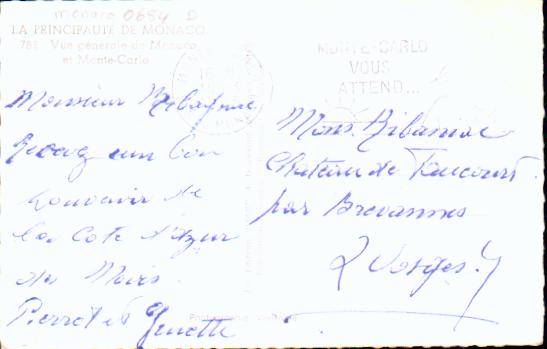 monaco 0684 D
LA PRINCIPAUTÉ DE MONACO
788 Vue générale de Monaco
et Monte-Carlo
MONTE-CARLO
VOUS
ATTEND...
Monsieur
Recevez un bon
Souvenir de
la Cote d'Azur
des
Pierrot et Ginette
Mons. Ribaniac
Chateau de
par Brevannes
(Vosges)